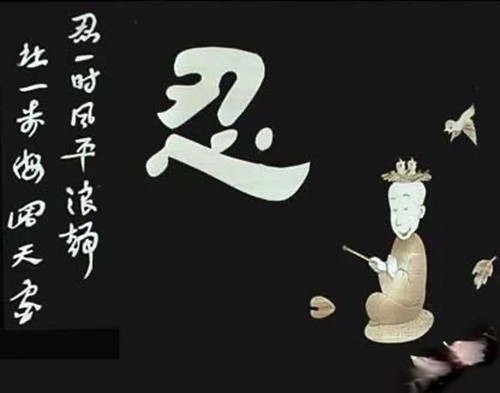 忍
忍一时风平浪静
退一步海阔天空